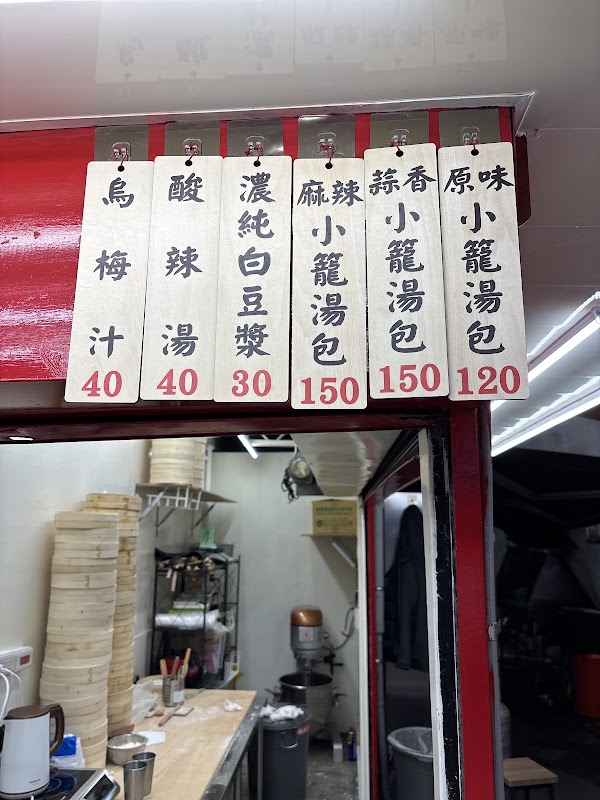 原味小籠湯包
120
蒜香小籠湯包
150
麻辣小籠湯包
150
濃純白豆漿
30
酸辣湯
40
烏梅汁
40